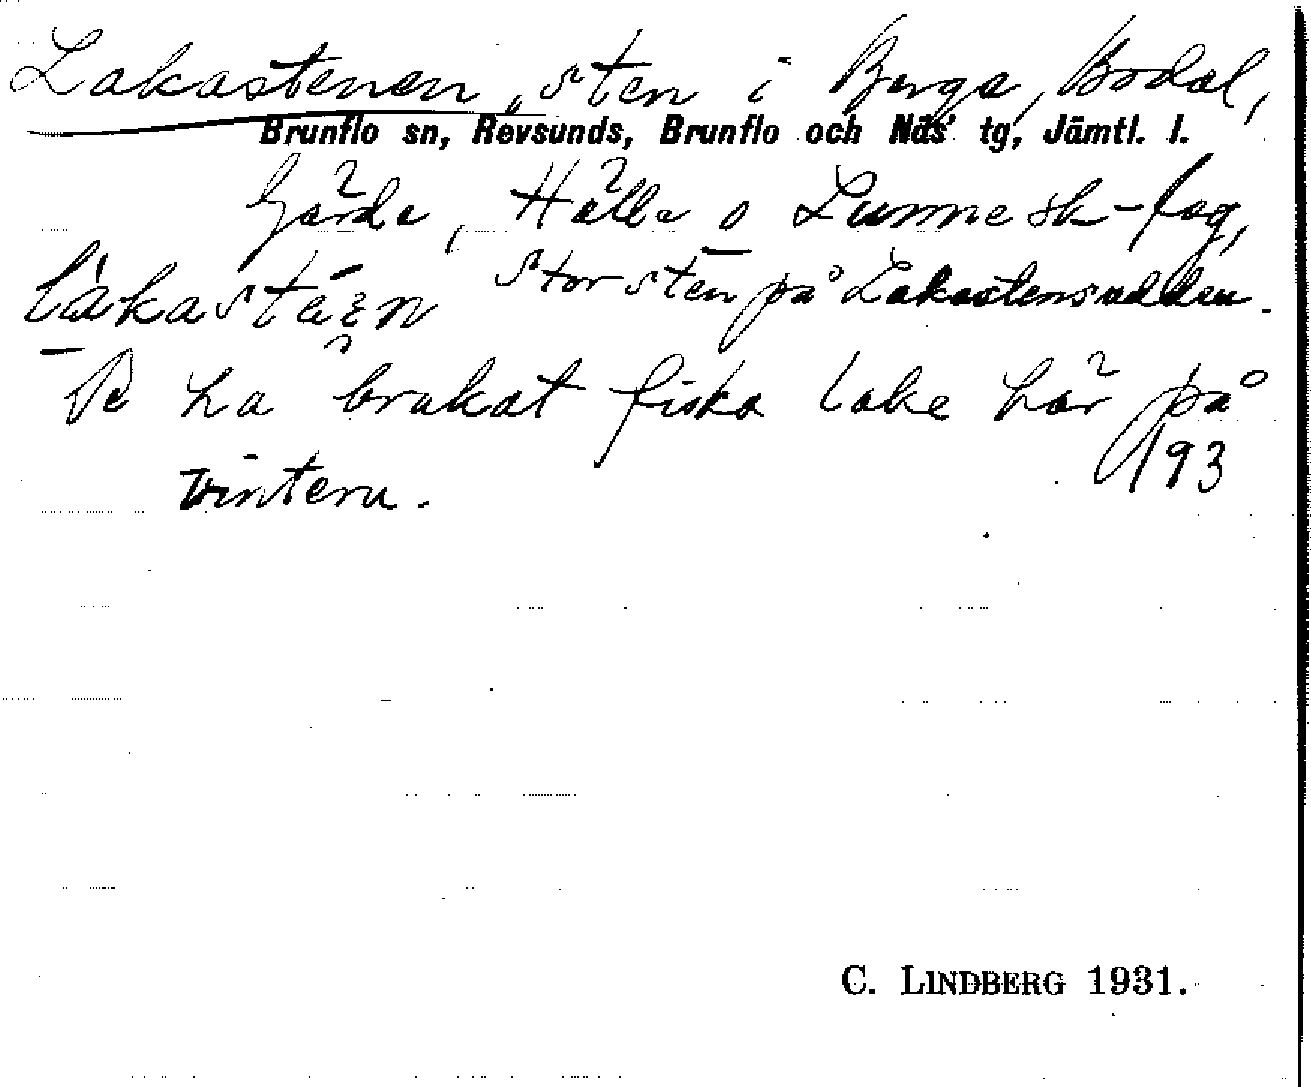 Lakastenen, sten i Berga, Bodal,
Brunflo sn, Revsunds, Brunflo och Näs' tg, Jämtl. l.
Gärde, Hälle o Lunne sk-lag,
stor sten på Lakastensudden.
De ha brukat fiska lake här på
vintern. 193
C. LINDBERG 1931.